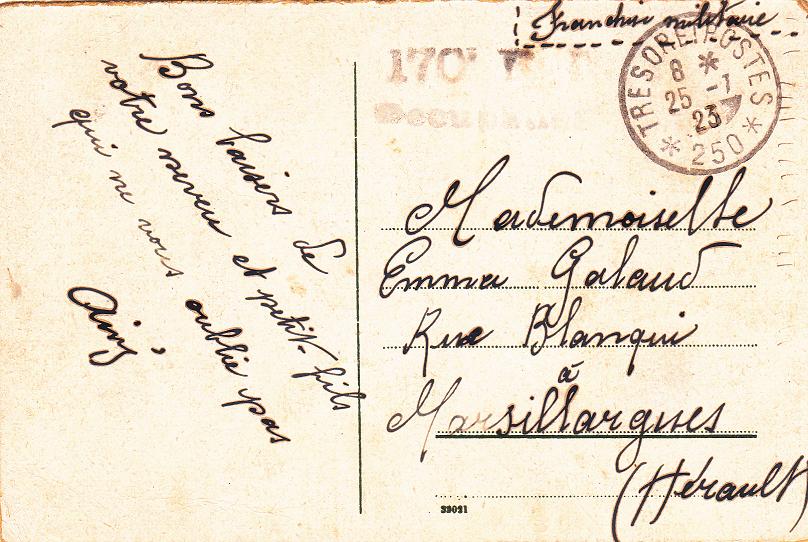 Franchise militaire
TRESOR ET POSTES
8 *
25 - 7
23
* 250 *
170
Bons baisers de
votre neveu et petit-fils
qui ne vous oublie pas
Mademoiselle
Emma Galaud
Rue Blanqui
à
Marsillargues
(Hérault)
39021